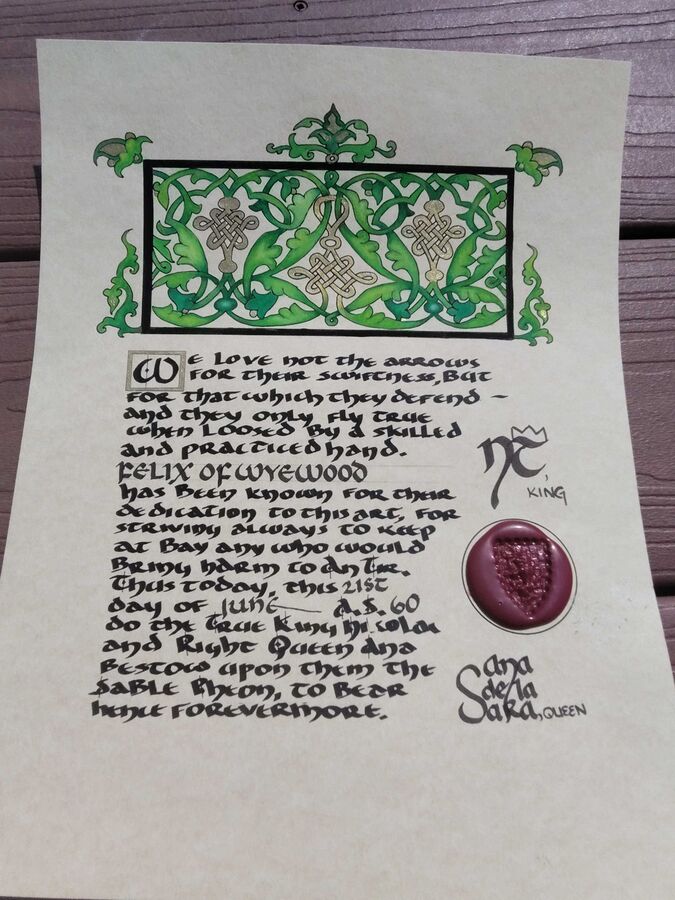 We love not the arrows
for their swiftness, but
for that which they defend ~
and they only fly true
when loosed by a skilled
and practiced hand.
FELIX OF WYEWOOD
has been known for their
dedication to this art, for
striving always to keep
at bay any who would
bring harm to An Tir.
Thus today, this 21st
day of June A.S. 60
do the True King
and Right Queen Ana
bestow upon them the
Sable Pheon, to bear
hence forevermore.
KING
Ana
de la
Sara, QUEEN